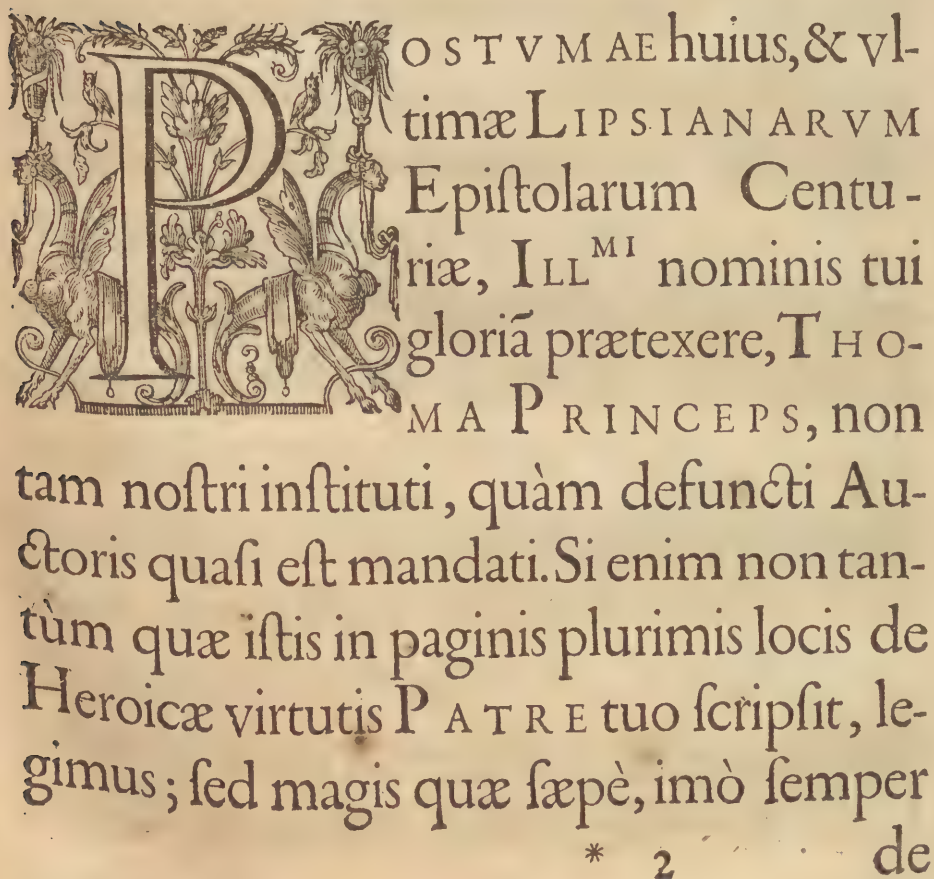 POSTVMAE huius, & vl-
timæ LIPSIANARVM
Epiſtolarum Centu-
riæ, ILLᴹᴵ nominis tui
gloriã prætexere, THO-
MA PRINCEPS, non
tam noſtri inſtituti, quàm defuncti Au-
ctoris quaſi eſt mandati. Si enim non tan-
tùm quæ iſtis in paginis plurimis locis de
Heroicæ virtutis PATRE tuo ſcripſit, le-
gimus; ſed magis quæ ſæpè, imò ſemper
* 2 de